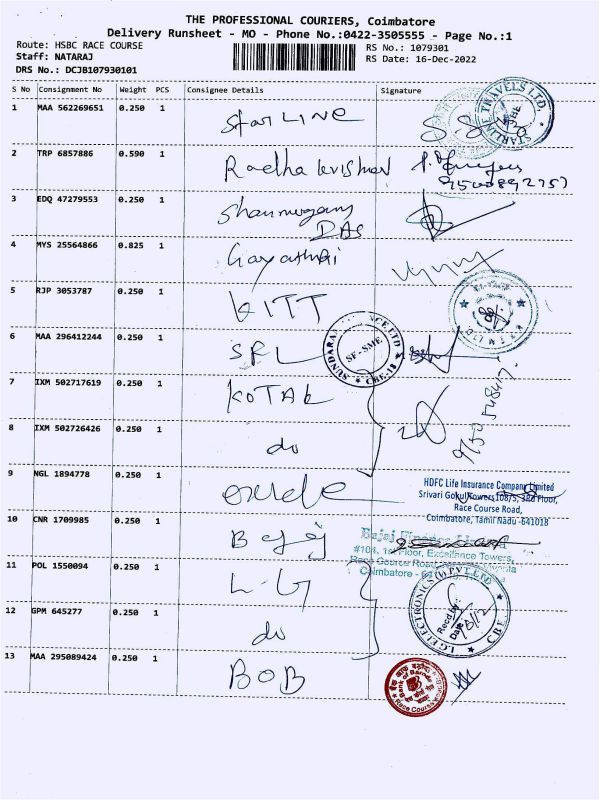 THE PROFESSIONAL COURIERS, Coimbatore
Delivery Runsheet - MO - Phone No.:0422-3505555 - Page No.:1
Route: HSBC RACE COURSE
RS No.: 1079301
Staff: NATARAJ
RS Date: 16-Dec-2022
DRS No.: DCJB107930101
S No Consignment No Weight PCS Consignee Details Signature
1 MAA 562269651 0.250 1 Star LINE
STARLINE TRAVELS LTD.
2 TRP 6857886 0.590 1 Radha krishnan
3 EDQ 47279553 0.250 1 Shanmugam
DAS
4 MYS 25564866 0.825 1 Gayathri
5 RJP 3053787 0.250 1 KITT
6 MAA 296412244 0.250 1 SFL
SF-SME
CBE-18
7 IXM 502717619 0.250 1 KOTAK
8 IXM 502726426 0.250 1 do
9 NGL 1894778 0.250 1
HDFC Life Insurance Company Limited
Srivari Gokul Towers 108/5, 3rd Floor,
Race Course Road,
Coimbatore, Tamil Nadu -641018
10 CNR 1709985 0.250 1 Bajaj
Bajaj Finance Limited
#104, 1st Floor, Excellance Towers,
Race Course Road,
Coimbatore -
11 POL 1550094 0.250 1 L.G
LG ELECTRONICS (I) PVT. LTD
Recd by
Date
CBE
12 GPM 645277 0.250 1 do
13 MAA 295089424 0.250 1 BOB
Bank of Baroda
Race Course